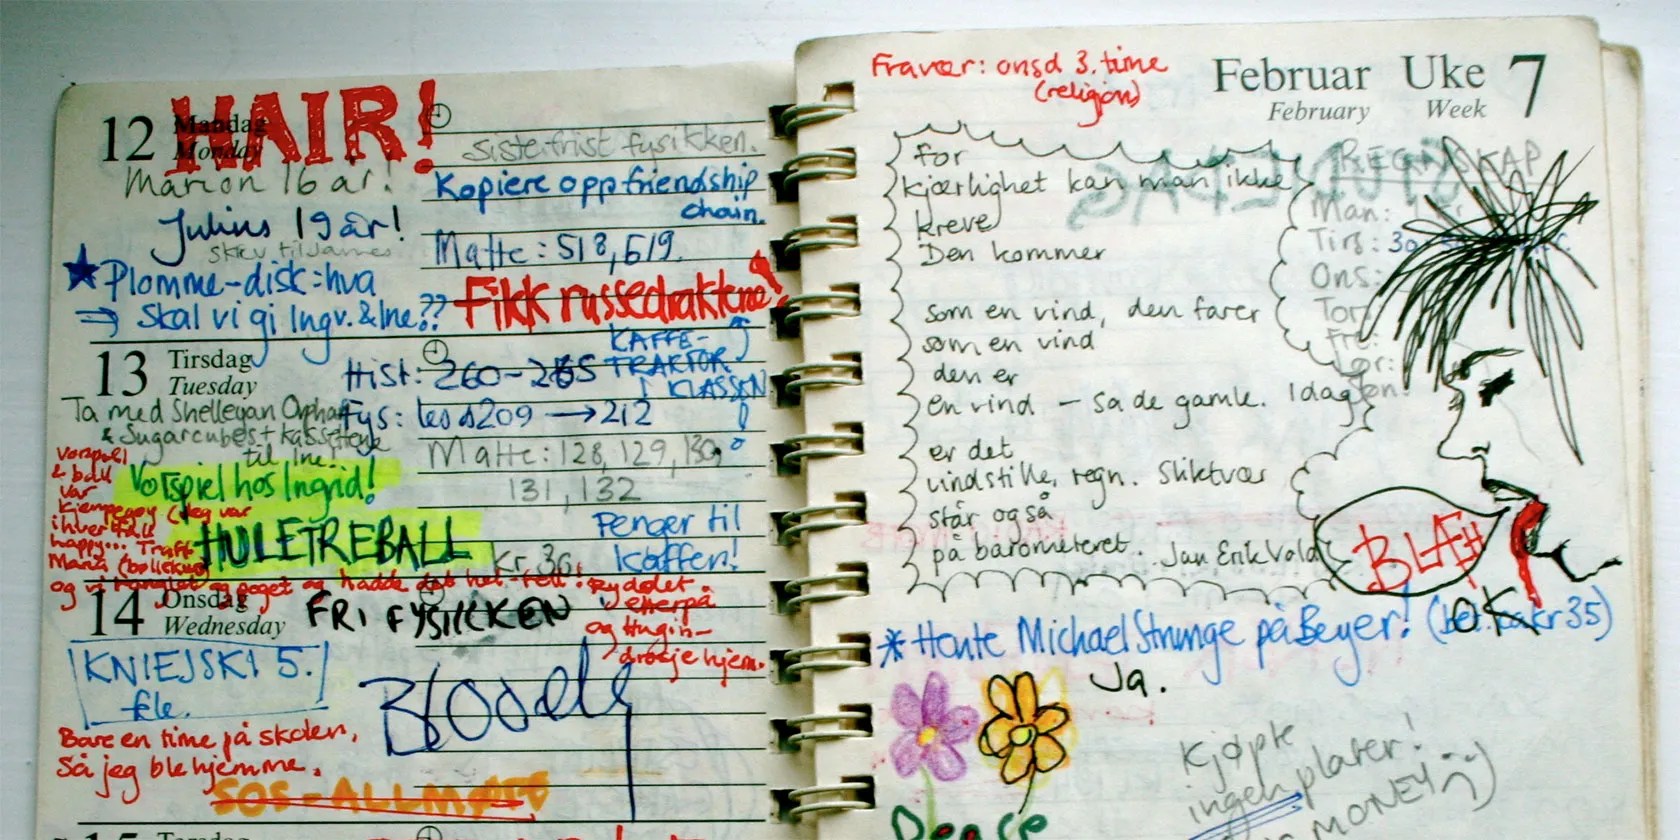 12 Mandag
Monday
HAIR!
Marion 16 år!
Julius 19 år!
skriv til James
Plomme-disk: hva
⇒ Skal vi gi Ingv. & Ine??
siste frist fysikken.
Kopiere opp friendship
chain.
Matte: 518, 519.
Fikk russedraktene!
13 Tirsdag
Tuesday
Ta med Shelleyan Orphan
& Sugarcubes + kassett
til Ine!
Vorspiel hos Ingrid!
HULETREBALL
Kr. 30,
Hist: 260-265
KAFFE-
TRAKTOR
I KLASSEN
Fys: les s209 → 212
Matte: 128, 129, 130,
131, 132
Penger til
kaffen!
vorspiel
& ball
var
kjempegøy (Jeg var
ihvertfall
happy... Traff
Maria
og vi og hadde det
Ryddet
etterpå
og Hugin-
drosje hjem.
14 Onsdag
Wednesday
FRI FYSIKKEN
KNIEJSKI 5.
fle.
Bloody
Bare en time på skolen,
Så jeg ble hjemme.
SOS-ALLMØTE
Fravær: onsd 3. time
(religion)
Februar Uke 7
February Week
for
kjærlighet kan man ikke
kreve
Den kommer
som en vind, den farer
som en vind
den er
en vind – sa de gamle. Idag
er det
vindstille, regn. Sliktvær
står også
på barometeret. Jan Erik Vold
REGNSKAP
Man:
Tirs: 30
Ons:
Tor
Fre:
Lør:
Søn:
BLÆH
* Hente Michael Strunge på Beyer! (bet. kr 35)
OK
Ja.
Peace
Kjøpte
ingen plater!
MONEY